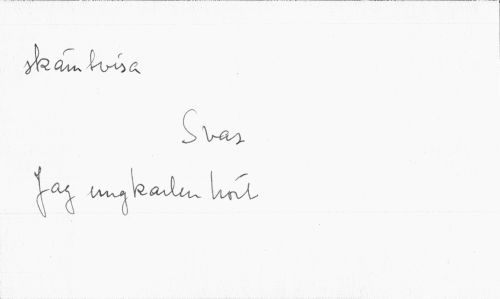 skämtvisa
Svar
Jag ungkarlen hört